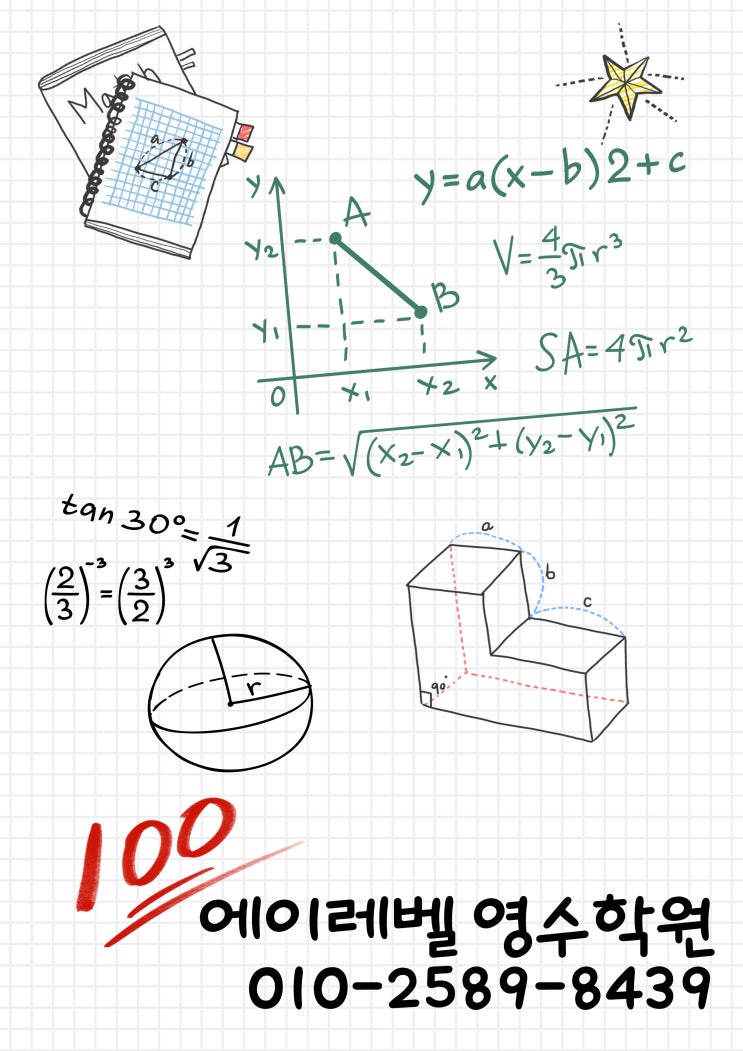 Math
a
b
c
y=a(x-b)2+c
y
A
y₂
V=4/3πr³
B
y₁
SA=4πr²
0
x₁
x₂
x
AB=√((x₂-x₁)²+(y₂-y₁)²)
tan 30°=1/√3
(2/3)⁻³=(3/2)³
a
b
c
90°
r
100
에이레벨 영수학원
010-2589-8439